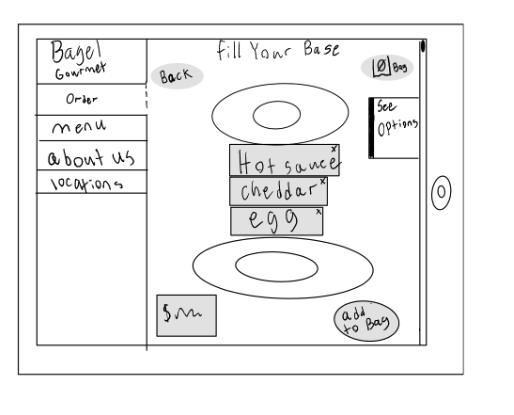 Bagel
Gourmet
Order
menu
about us
locations
Fill Your Base
Back
0 Bag
See
Options
Hot sauce x
cheddar x
egg x
$
add
to Bag